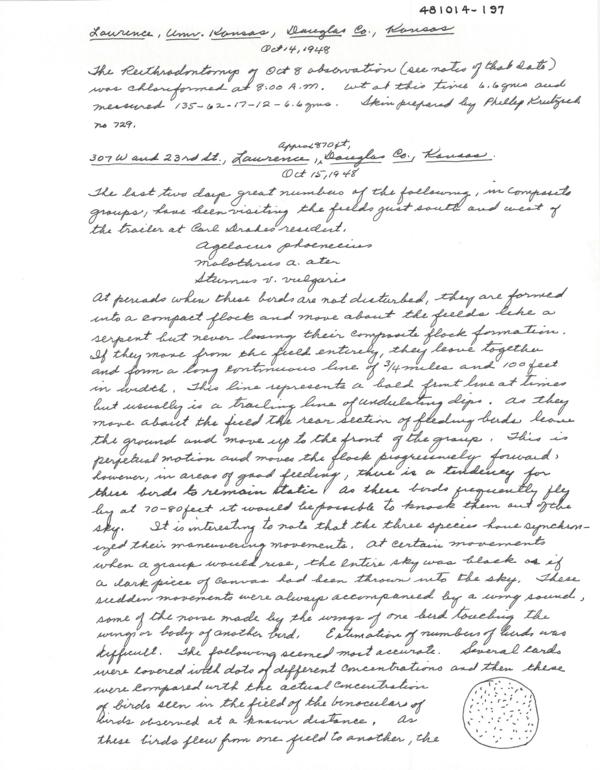 481014-197
Lawrence, Univ. Kansas, Douglas Co., Kansas
Oct 14, 1948
The Reithrodontomys of Oct 8 observation (see notes of that date)
was chloroformed at 8:00 A.M. wt at this time 6.6 gms and
measured 135-62-17-12-6.6 gms. Skin prepared by Phillip Krutzsch
no 729.
Approx 870 ft,
307 W and 23rd St., Lawrence, Douglas Co., Kansas.
Oct 15, 1948
The last two days great numbers of the following, in composite
groups, have been visiting the fields just south and west of
the trailer at Carl Drakes resident.
Agelaius phoenecius
Molothrus a. ater
Sturnus v. vulgaris
At periods when these birds are not disturbed, they are formed
into a compact flock and move about the fields like a
serpent but never losing their composite flock formation.
If they move from the field entirely, they leave together
and form a long continuous line of 3/4 miles and 100 feet
in width. This line represents a bold front line at times
but usually is a trailing line of undulating dips. As they
move about the field the rear section of feeding birds leave
the ground and move up to the front of the group. This is
perpetual motion and moves the flock progressively forward,
however, in areas of good feeding, there is a tendency for
these birds to remain static. As these birds frequently fly
by at 70-80 feet it would be possible to knock them out of the
sky. It is interesting to note that the three species have synchron-
ized their maneuvering movements. At certain movements
when a group would rise, the entire sky was black as if
a dark piece of canvas had been thrown into the sky. These
sudden movements were always accompanied by a wing sound,
some of the noise made by the wings of one bird touching the
wings or body of another bird. Estimation of numbers of birds was
difficult. The following seemed most accurate. Several cards
were covered with dots of different concentrations and then these
were compared with the actual concentration
of birds seen in the field of the binoculars of
birds observed at a known distance. As
these birds flew from one field to another, the